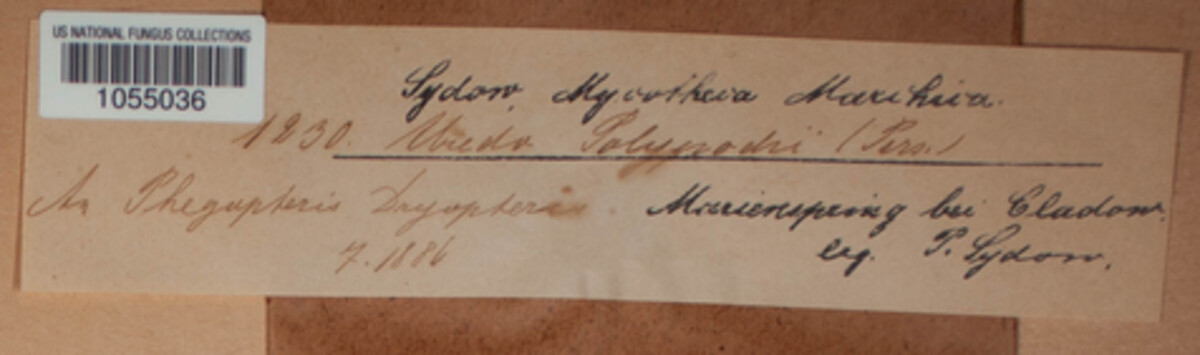 US NATIONAL FUNGUS COLLECTIONS
1055036
Sydow, Mycotheca Marchica.
1230. Uredo Polypodii (Pers.)
An Phegopteris Dryopteris. Marienspring bei Cladow.
7. 1886 leg. P. Sydow.